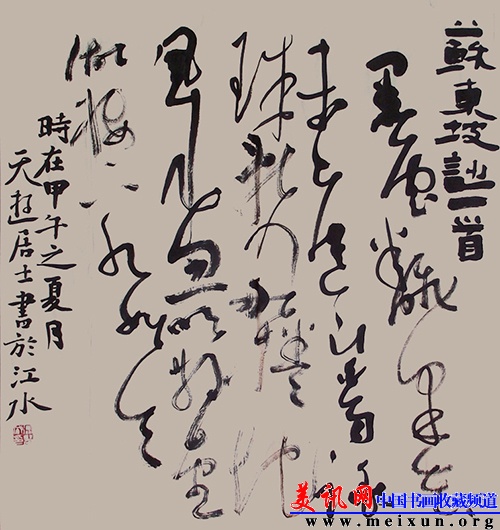 蘇東坡詩一首
黑雲翻墨
未遮山白雨跳
珠亂入船卷地
風來忽吹散望
湖樓下水如天
時在甲午之夏月
天居士書於江水
美讯网 中国书画收藏频道
www.meixun.org